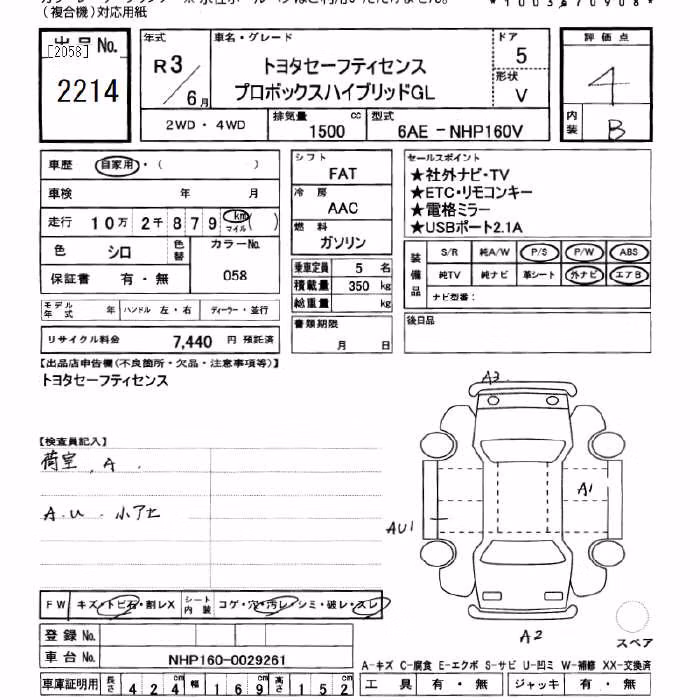 （複合機）対応用紙
*1003670908*
出品No.
[2058]
2214
年式
R3/6月
車名・グレード
トヨタセーフティセンス
プロボックスハイブリッドGL
ドア
5
形状
V
評価点
4
内装
B
2WD・4WD
排気量 1500 cc
型式 6AE－NHP160V
車歴 自家用・（ ）
車検 年 月
走行 10万2千879 km（ ）マイル
色 シロ 色替 カラーNo.
058
保証書 有・無
モデル年式 年 ハンドル 左・右 ディーラー・並行
リサイクル料金 7,440 円 預託済
シフト
FAT
冷房
AAC
燃料
ガソリン
乗車定員 5 名
積載量 350 kg
総重量 kg
書類期限
月 日
セールスポイント
★社外ナビ・TV
★ETC・リモコンキー
★電格ミラー
★USBポート2.1A
装備品
S/R 純A/W P/S P/W ABS
純TV 純ナビ 革シート 外ナビ エアB
ナビ型番：
後日品
【出品店申告欄（不良箇所・欠品・注意事項等）】
トヨタセーフティセンス
【検査員記入】
荷室、A.
A.U. 小アヒ
FW キズ・トビ石・割レX シート内装 コゲ・穴・汚レ・シミ・破レ・スレ
登録No.
車台No. NHP160-0029261
車庫証明用 長さ 424cm 幅 169cm 高さ 152cm
A3
A1
AU1
A2
スペア
A-キズ C-腐食 E-エクボ S-サビ U-凹ミ W-補修 XX-交換済
工具 有・無 ジャッキ 有・無